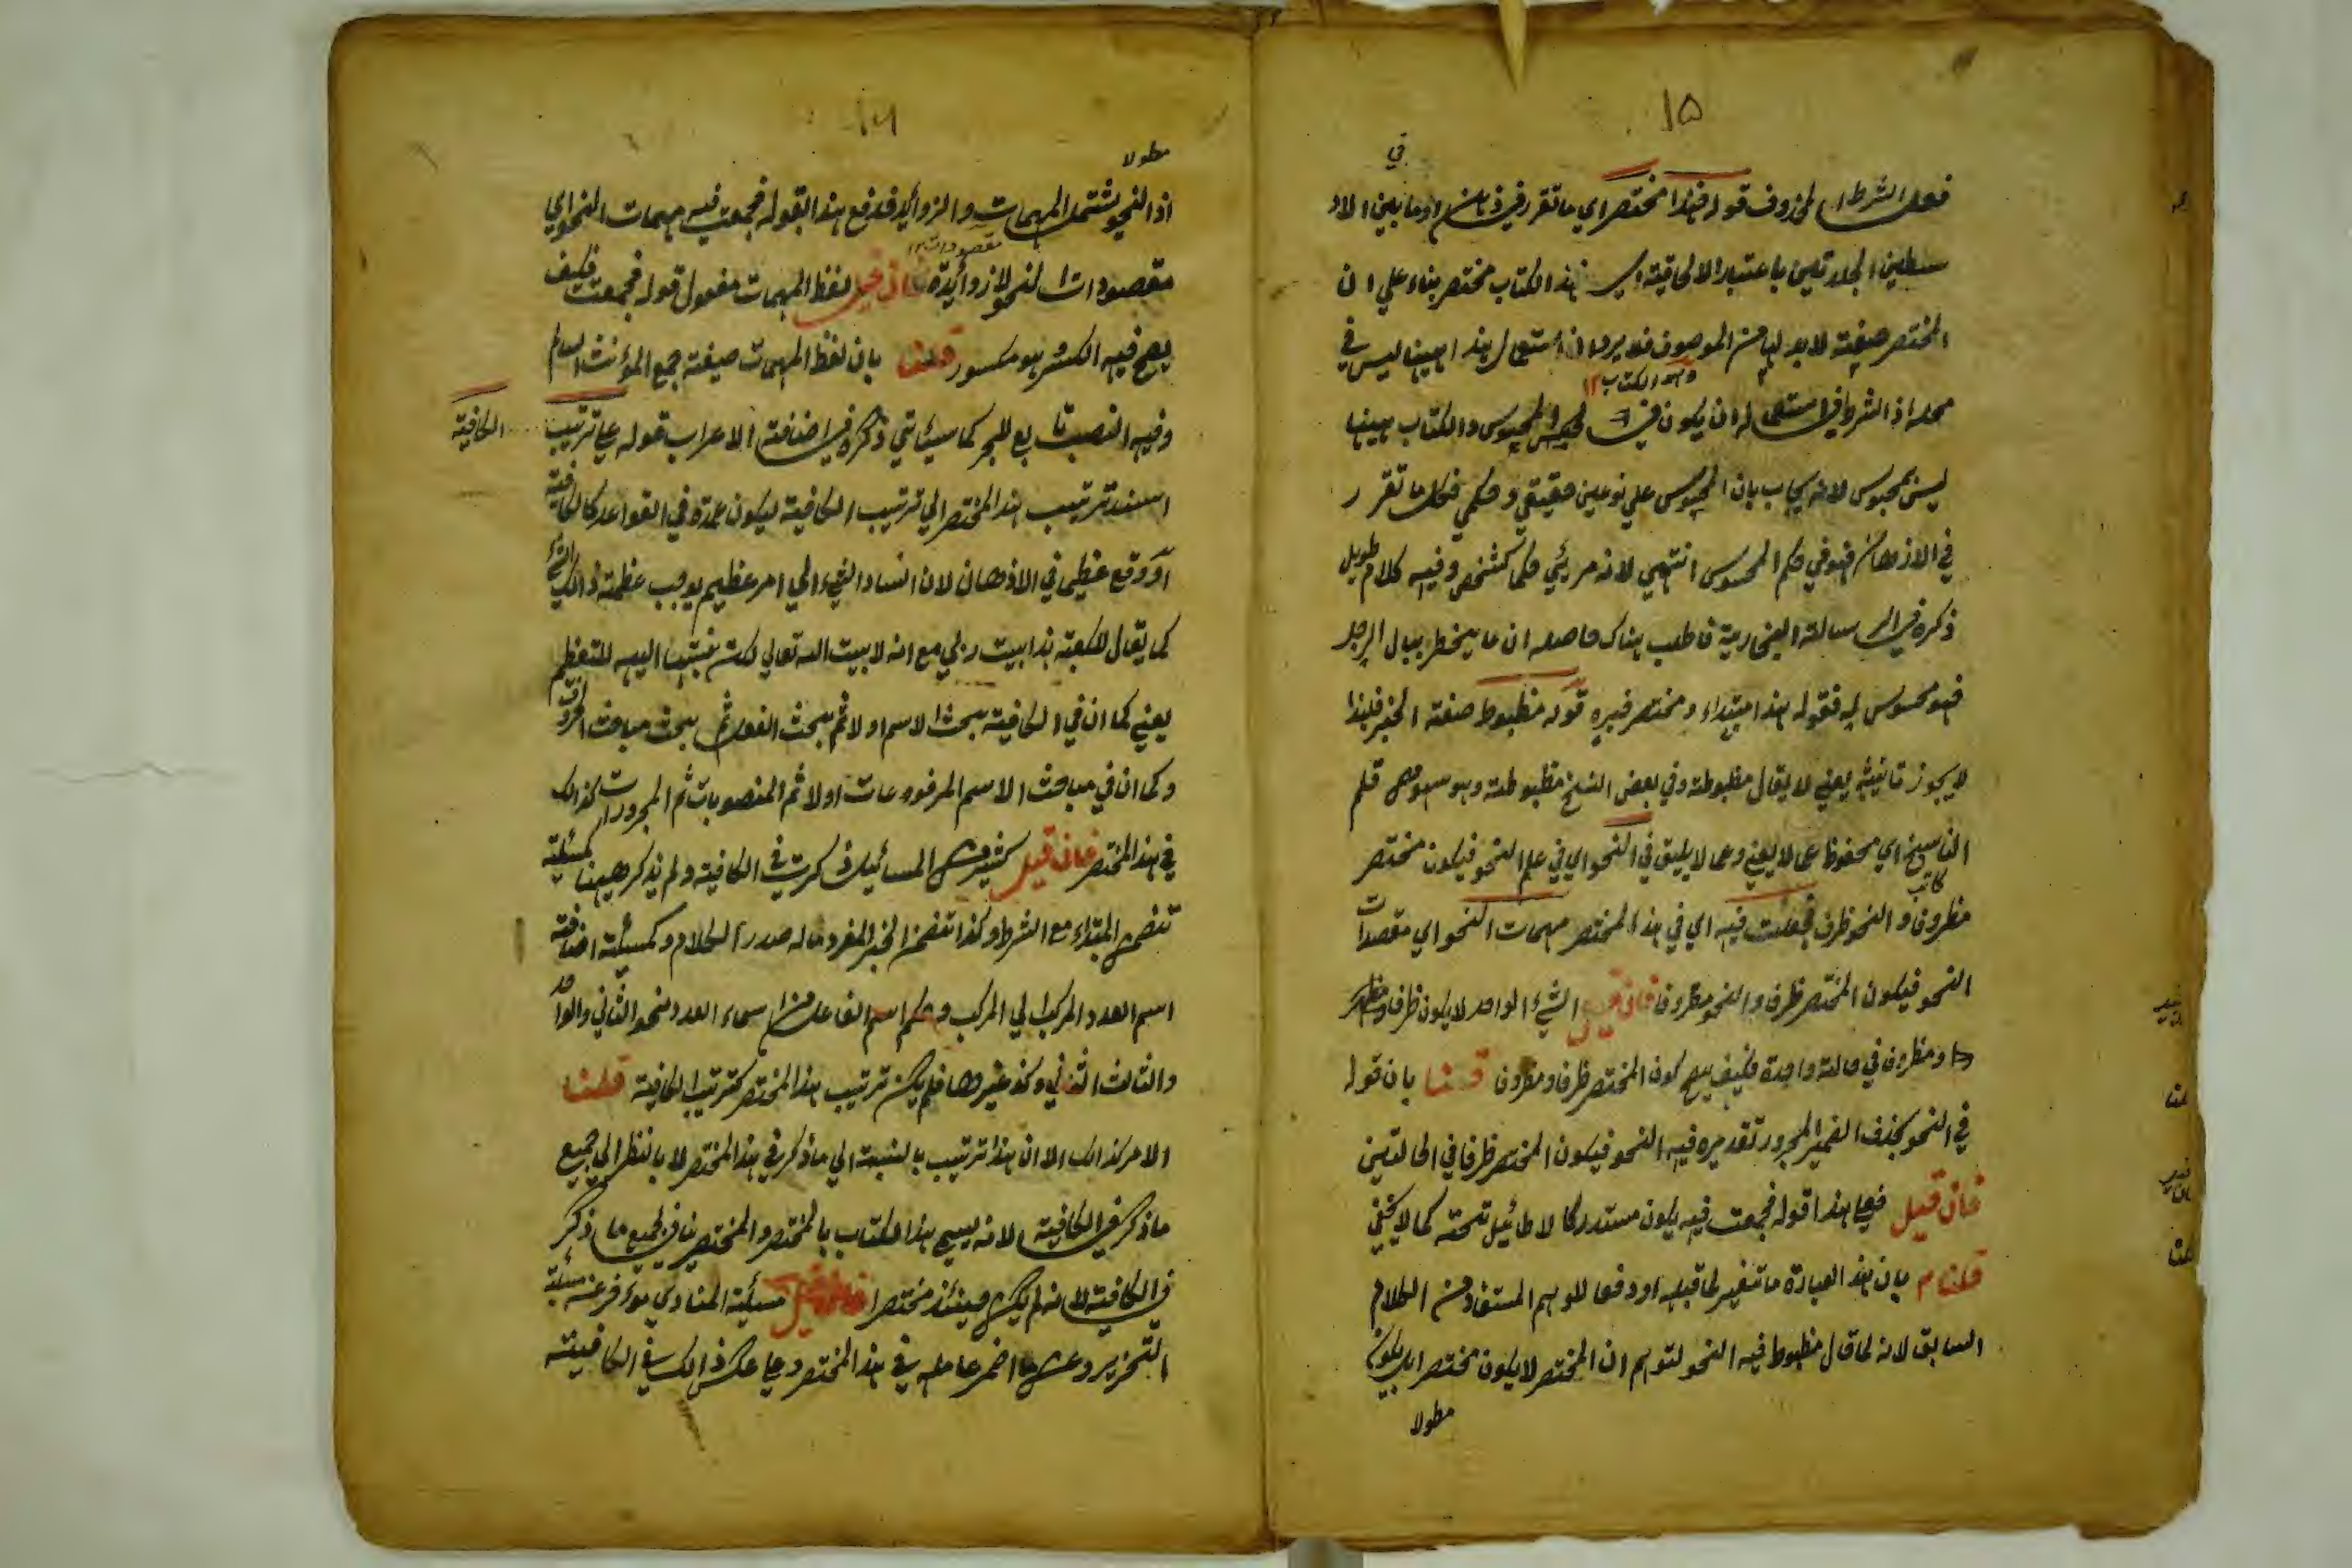 ١٥
في
فعل الشرط المحذوف قوله فهذا مختصر اي ما تقرر في ذهنه او ما بين الاو
سطين المجلدتين باعتبار الالحاقية اي هذا الكتاب مختصر بناء علي ان
المختصر صفته لا بد لها من الموصوف فلا يرد ان استعمال هذا ههنا ليس في
وهو الكتاب ١٢
محله اذ الشرط في استعماله ان يكون المحسوس والكتاب ههنا
ليس بمحسوس لانه يجاب بان المحسوس علي نوعين حقيقي وحكمي فكل ما تقرر
في الاذهان فهو في حكم المحسوس انتهي لانه مرئي حكما كمشخص وفيه كلام طويل
ذكره في الرسالة الفخارية فاطلب هناك حاصله ان ما يخطر ببال الرجل
فهو محسوس له فقوله هذا مبتداء ومختصر خبره قوله مظبوط صفته الخبر فلهذا
لا يجوز تانيثه يعني لا يقال مظبوطة وفي بعض النسخ مظبوطة وهو سهو من قلم
الناسخ اي محفوظ عما لا يعني وعما لا يليق في النحو اي في علم النحو فيكون مختصر
كاتب
مظروف والنحو ظرف فجمعت فيه اي في هذا المختصر مهمات النحو اي مقصدات
النحو فيكون المختصر ظرفا والنحو مظروفا فان قيل الشيء الواحد لا يكون ظرفا ومظر
ومظروف في حالة واحدة فكيف يصح كون المختصر ظرفا ومظروف قلنا بان قوله
في النحو بحذف الضمير المجرور تقديره فيه النحو فيكون المختصر ظرفا في الحالتين
فان قيل فعلي هذا قوله فجمعت فيه يكون مستدركا لا طائيل تحته كما لا يخفي
قلنا م بان هذا العبارة ما تفسير لما قبله او دفعا للوهم المستفاد من الكلام
السابق لانه لما قال مظبوط فيه النحو لتوهم ان المختصر لا يكون مختصرا بل يكون
مطولا
١٦
مطولا
اذ النحو يشتمل المهمات والزوائد فدفع هذا بقوله فجمعت فيه مهمات النحو اي
مقصودات النحو لا زوائده فان قيل لفظ المهمات مفعول قوله فجمعت فكيف
يصح فيه الكسر وهو مكسور قلنا بان لفظ المهمات صيغته جمع المؤنث السالم
وفيه النصب تابع للجر كما سيئاتي ذكره في اضافة الاعراب قوله علي ترتيب
الكافية
اسند ترتيب هذا المختصر الي ترتيب الكافية ليكون عمدة في القواعد كالكافية
او وقع عظيما في الاذهان لان اسناد الشيء الي امر عظيم يوجب عظمة ذالك الشئ
كما يقال للكعبة هذا بيت ربي مع انه لا بيت الله تعالي لكن نسبتها اليه للتعظيم
يعني كما ان في الكافية بحث الاسم اولا ثم بحث الفعل ثم بحث مباحث الحروف
وكما ان في مباحث الاسم المرفوعات اولا ثم المنصوبات ثم المجرورات كذالك
في هذا المختصر فان قيل كثير من المسائيل ذكرت في الكافية ولم يذكر ههنا كمسئلة
تضمن المبتداء مع الشرط وكذا تضمن الخبر المفرد ما له صدر الكلام وكمسئلة اضافة
اسم العدد المركب الي المركب وحكم اسم الفاعل من اسماء العدد نحو الثاني والواحد
والثالث الثاني وكذ غيرها فلم يكن ترتيب هذا المختصر كترتيب الكافية قلنا
الامر كذالك الا ان هذا ترتيب بالنسبة الي ما ذكر في هذا المختصر لا بالنظر الي جميع
ما ذكر في الكافية لانه يسمي هذا الكتاب بالمختصر والمختصر ينافي لجميع ما ذكر
في الكافية لانه لم يكن حينئذ مختصرا فان قيل مسئلة المنادي موخر عنه مسئلة
التحذير وعن ما اضمر عامله في هذا المختصر وعلي عكس ذالك في الكافية